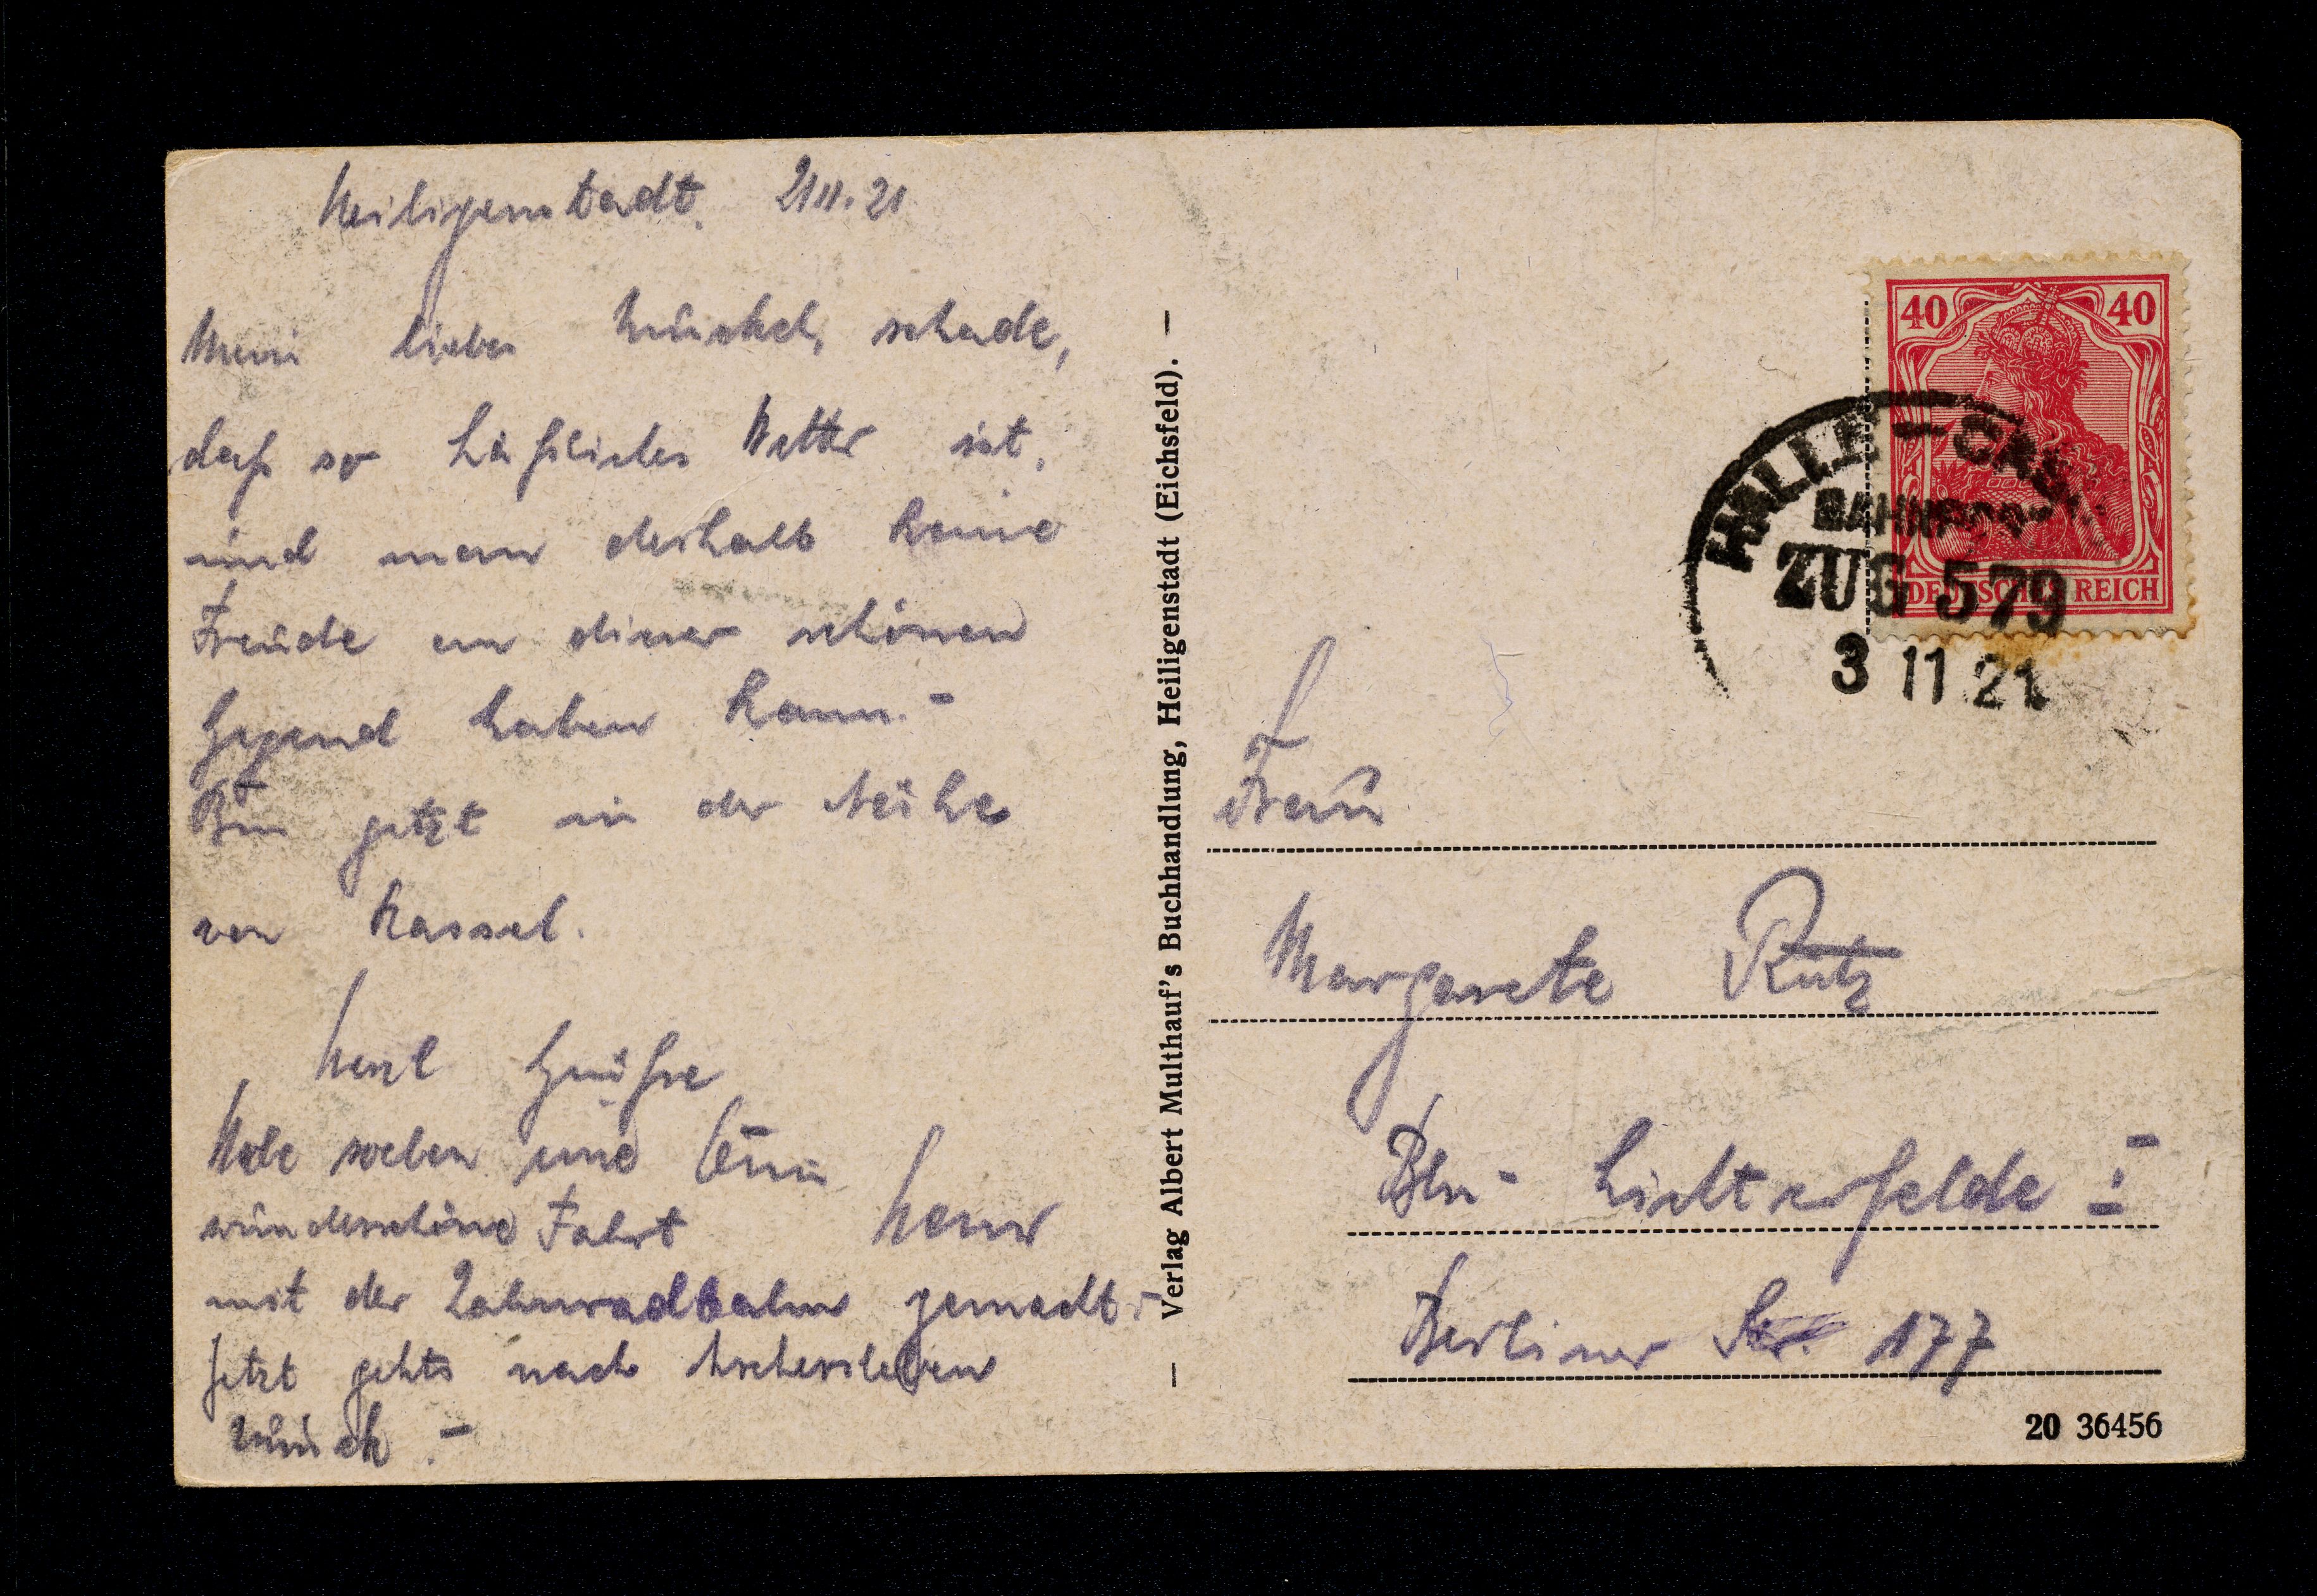 Heiligenstadt. 2.11.21
Mein lieber schade,
daß so häßliches Wetter ist,
und man deshalb keine
Freude an dieser schönen
Gegend haben kann.-
Bin jetzt in der Nähe
von Kassel.
Herzl Grüße
Habe soeben eine
wunderschöne Fahrt
mit der Zahnradbahn gemacht.-
Jetzt gehts nach Aschersleben
zurück.-
— Verlag Albert Multhauf's Buchhandlung, Heiligenstadt (Eichsfeld). —
40 40
DEUTSCHES REICH
HALLE - CASS
BAHNPOST
ZUG 579
3 11 21
Frau
Margarete Rütz
Bln- Lichterfelde
Berliner Str. 177
20 36456